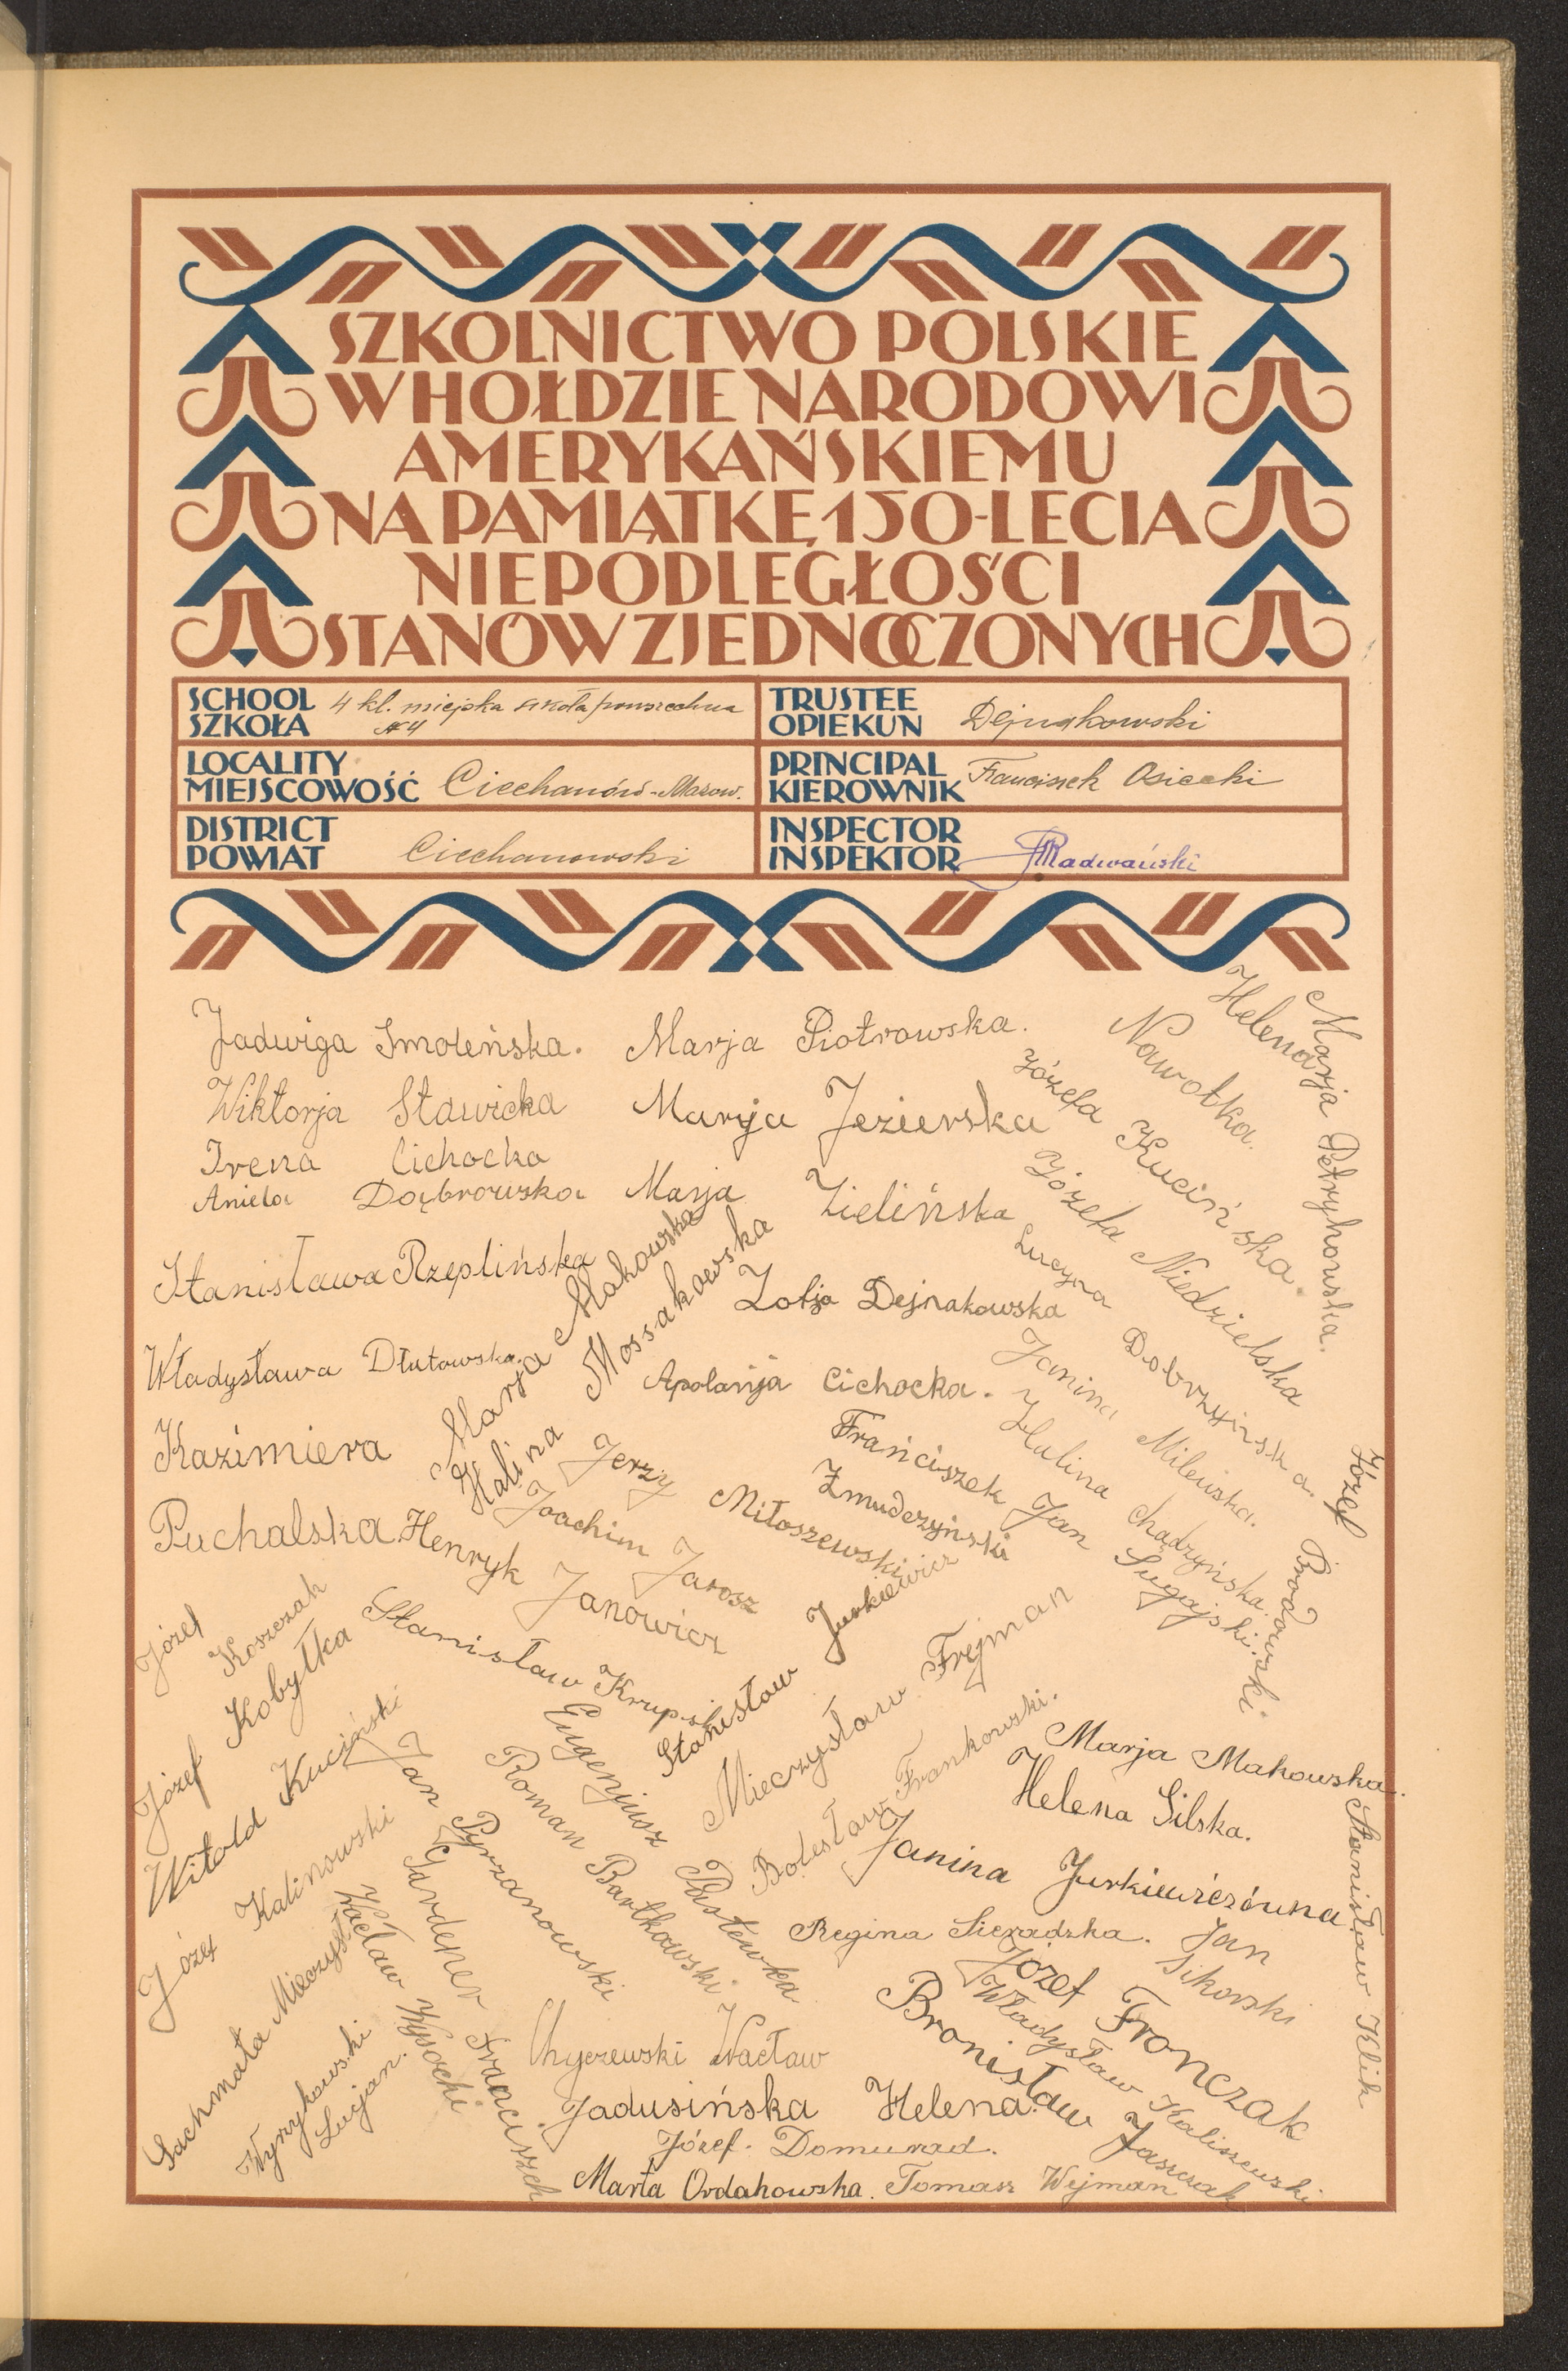 SZKOLNICTWO POLSKIE
W HOŁDZIE NARODOWI
AMERYKAŃSKIEMU
NA PAMIĄTKĘ 150-LECIA
NIEPODLEGŁOŚCI
STANÓW ZJEDNOCZONYCH
SCHOOL
SZKOŁA
4 kl. miejska szkoła powszechna
№ 4
TRUSTEE
OPIEKUN
Dejnakowski
LOCALITY
MIEJSCOWOŚĆ
Ciechanów-Mazow.
PRINCIPAL
KIEROWNIK
Franciszek Osiecki
DISTRICT
POWIAT
Ciechanowski
INSPECTOR
INSPEKTOR
Radwański
Jadwiga Smoleńska.
Marja Piotrowska.
Helena Nawotka.
Marja Petrykowska.
Wiktorja Sławicka
Marja Jezierska
Józefa Kucińska.
Irena Cichocka
Aniela Dąbrowska
Marja Zielińska
Józefa Niedzielska
Lucyna Dobrzyńska.
Stanisława Rzeplińska
Marja Makowska
Halina Mossakowska
Zofja Dejnakowska
Władysława Dłutowska.
Apolonja Cichocka.
Janina Milewska.
Halina Chądzyńska.
Kazimiera
Puchalska.
Jerzy Miłoszewski
Franciszek Żmudczyński
Jan Sugajski.
Józef Brodowski.
Joachim Jarosz
Henryk Janowicz
Józef Koszczak
Stanisław Krupski
Stanisław Jurkiewicz
Józef Kobyłka
Mieczysław Frejman
Witold Kuciński
Eugenjusz Pastewka
Bolesław Frankowski.
Marja Makowska.
Helena Gilska.
Jan Pyrzanowski
Roman Bartkowski
Janina Jurkiewiczówna
Stanisław Klik
Józef Kalinowski
Gardener Franciszek
Wacław Wysocki
Regina Sieradzka.
Jan Sikorski
Józef Fronczak
Sachmata Mieczysł
Wyrzykowski
Lucjan.
Chyczewski Wacław
Władysław Kaliszewski
Bronisław Jaszczak
Jadusińska Helena.
Józef. Domurad.
Marta Ordakowska.
Tomasz Wejman